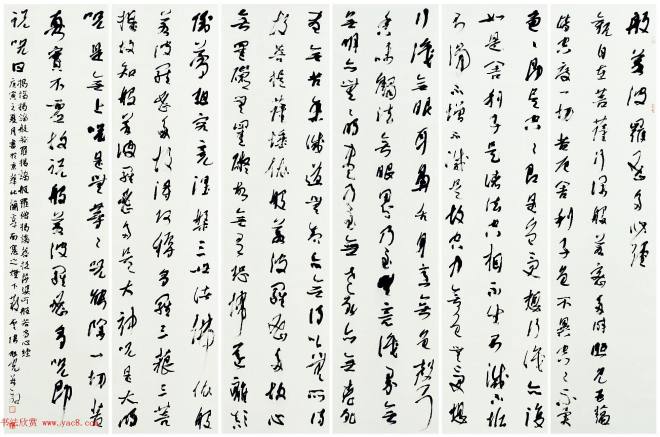 般若波羅蜜多心經
觀自在菩薩行深般若蜜多時照見五蘊
皆空度一切苦厄舍利子色不異空空不異
色色即是空空即是色受想行識亦復
如是舍利子是諸法空相不生不滅不垢
不淨不增不減是故空中無色無受想
行識無眼耳鼻舌身意無色聲
香味觸法無眼界乃至無意識界無
無明亦無無明盡乃至無老死亦無老死
盡無苦集滅道無智亦無得以無所得
故菩提薩埵依般若波羅蜜多故心
無罣礙無罣礙故無有恐怖遠離顛
倒夢想究竟涅槃三世諸佛依般
若波羅蜜多故得阿耨多羅三藐三菩
提故知般若波羅蜜多是大神咒是大明
咒是無上咒是無等等咒能除一切苦
真實不虛故說般若波羅蜜多咒即
說咒曰
揭諦揭諦般若羅揭諦般羅僧揭諦菩提薩婆訶般若多心經
庚寅之夏月書於
书法欣赏 www.yac8.com